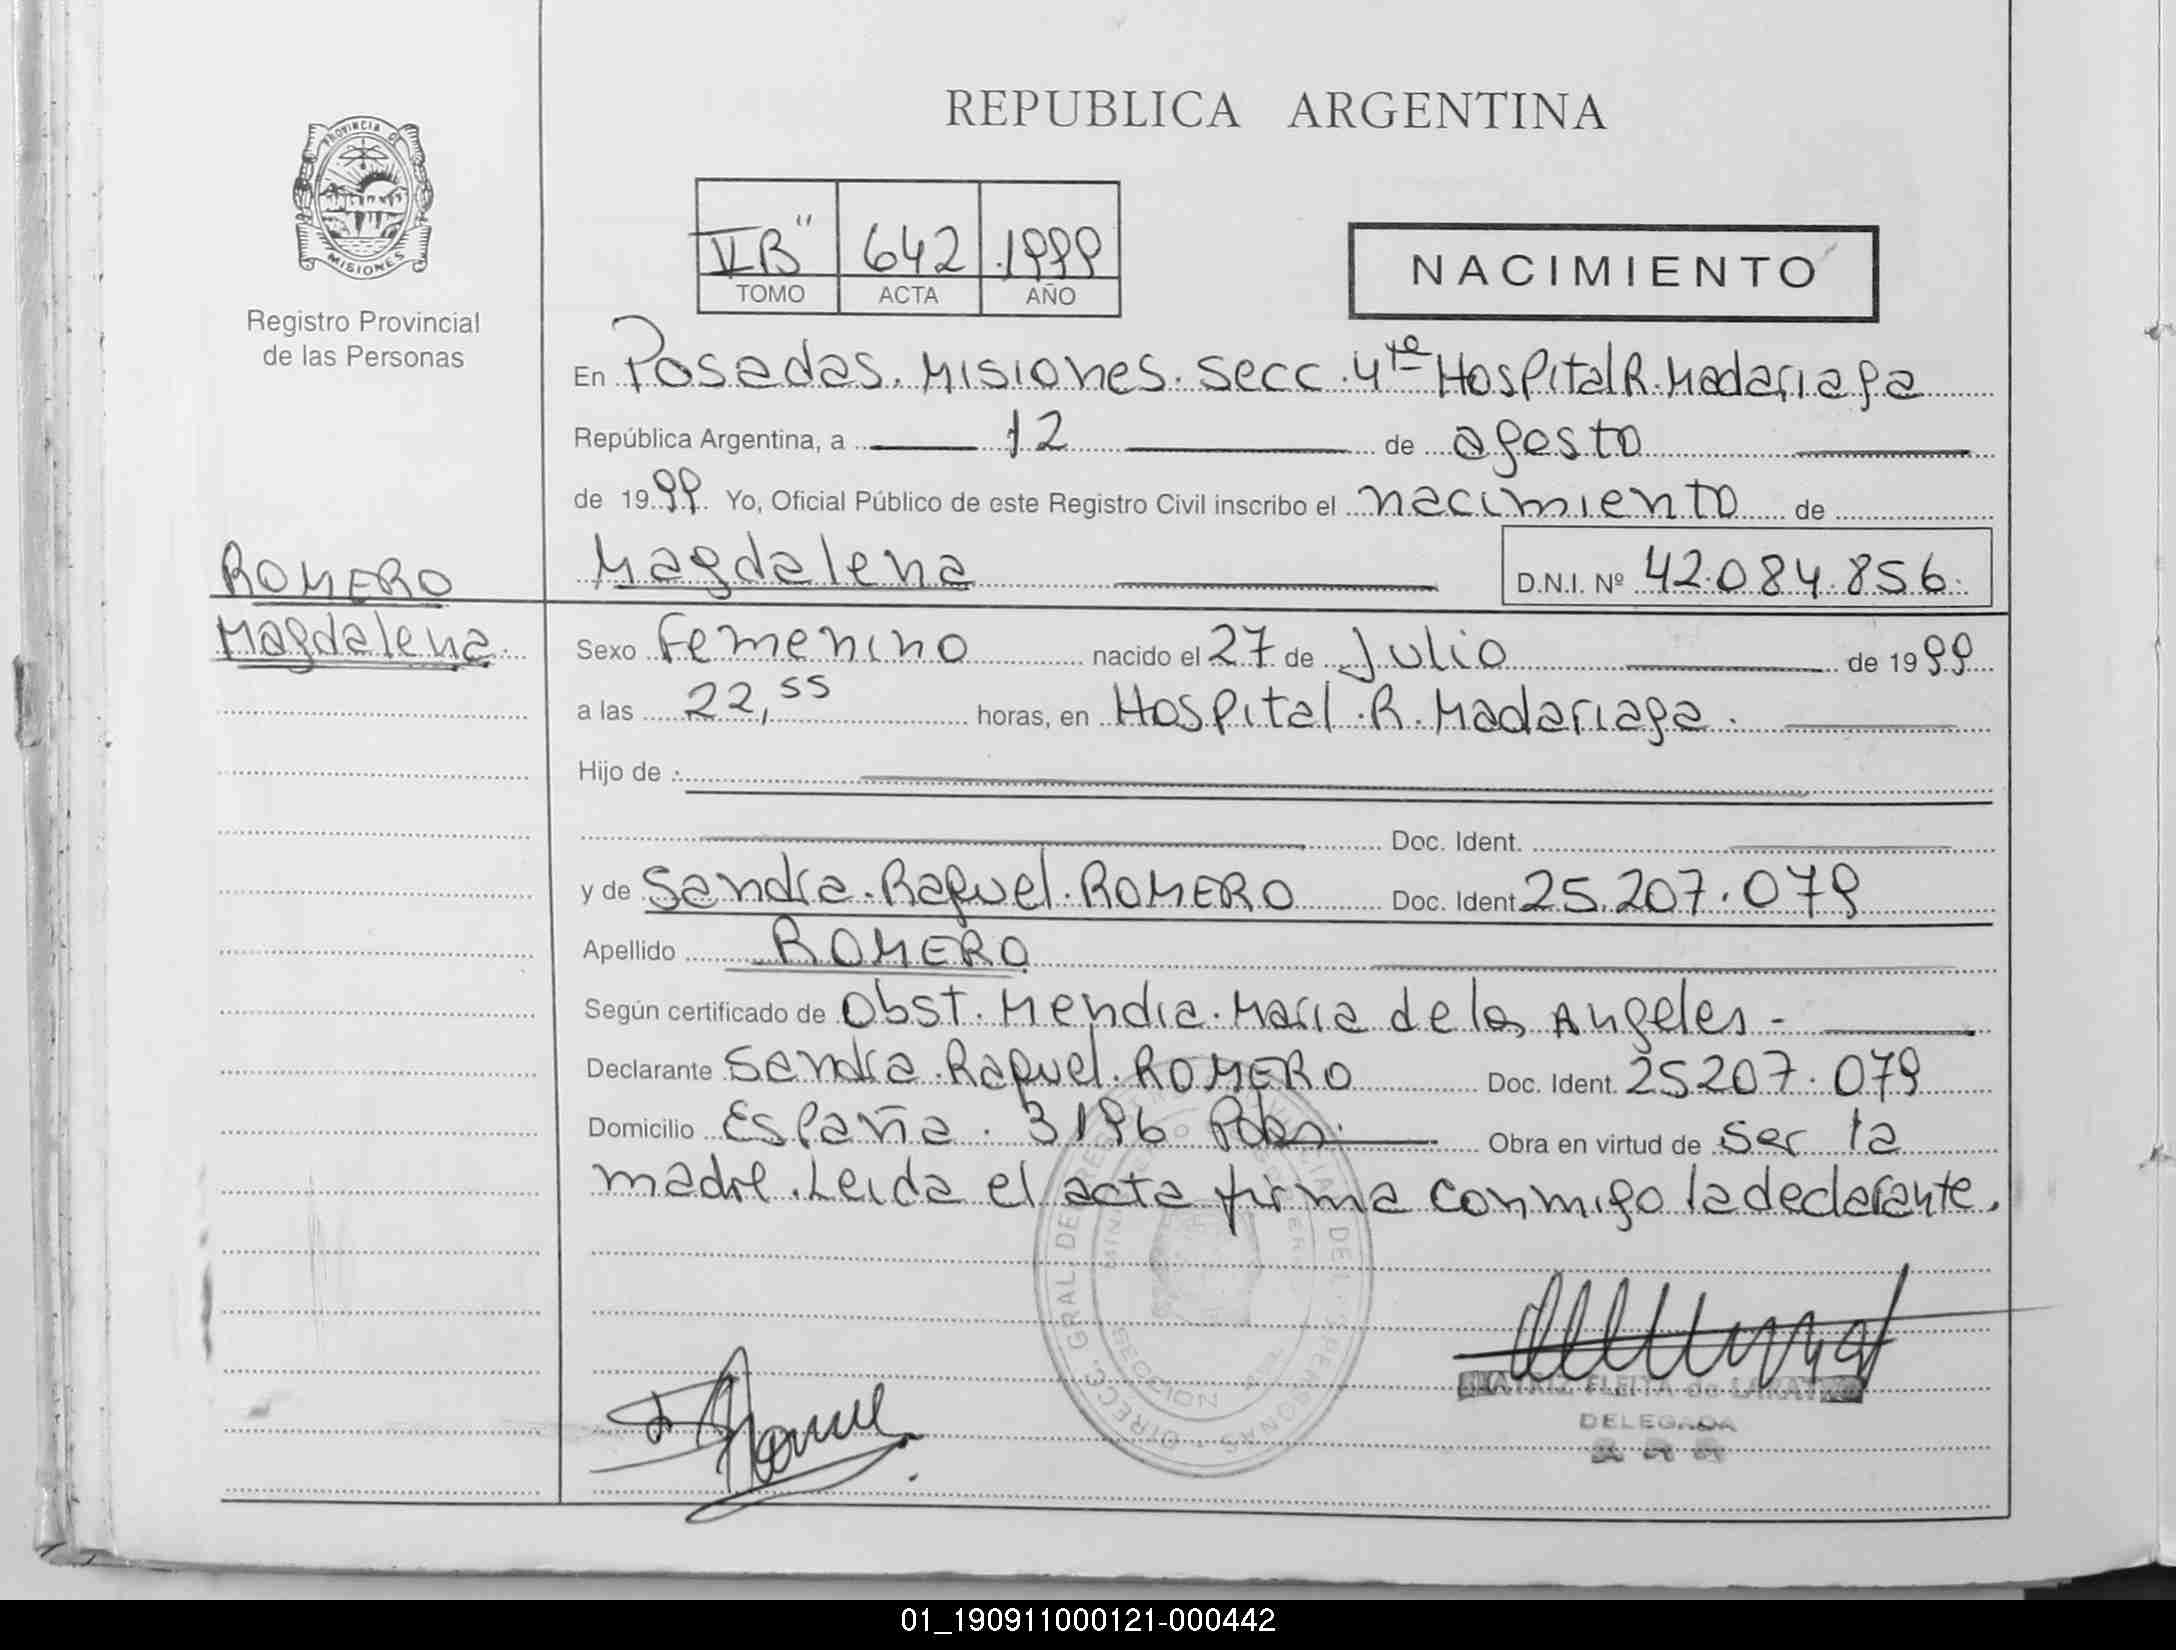 REPUBLICA ARGENTINA
PROVINCIA DE MISIONES
Registro Provincial
de las Personas
VB" 642 1999
TOMO ACTA AÑO
NACIMIENTO
En Posadas. Misiones. Secc. 4ta Hospital R. Madariaga
República Argentina, a 12 de agosto
de 1999 Yo, Oficial Público de este Registro Civil inscribo el nacimiento de
ROMERO
Magdalena.
Magdalena D.N.I. Nº 42.084.856.
Sexo Femenino nacido el 27 de Julio de 1999
a las 22,55 horas, en Hospital. R. Madariaga.
Hijo de
Doc. Ident.
y de Sandra. Raquel. ROMERO Doc. Ident. 25.207.079
Apellido ROMERO
Según certificado de Obst. Mendia. Maria de los Angeles -
Declarante Sandra. Raquel. ROMERO Doc. Ident. 25207.079
Domicilio España. 3196 Pdas. Obra en virtud de ser la
madre. Leida el acta firma conmigo la declarante.
DIRECC. GRAL. DEL PERSONAS
BEATRIZ FLEITA de
DELEGADA
01_190911000121-000442